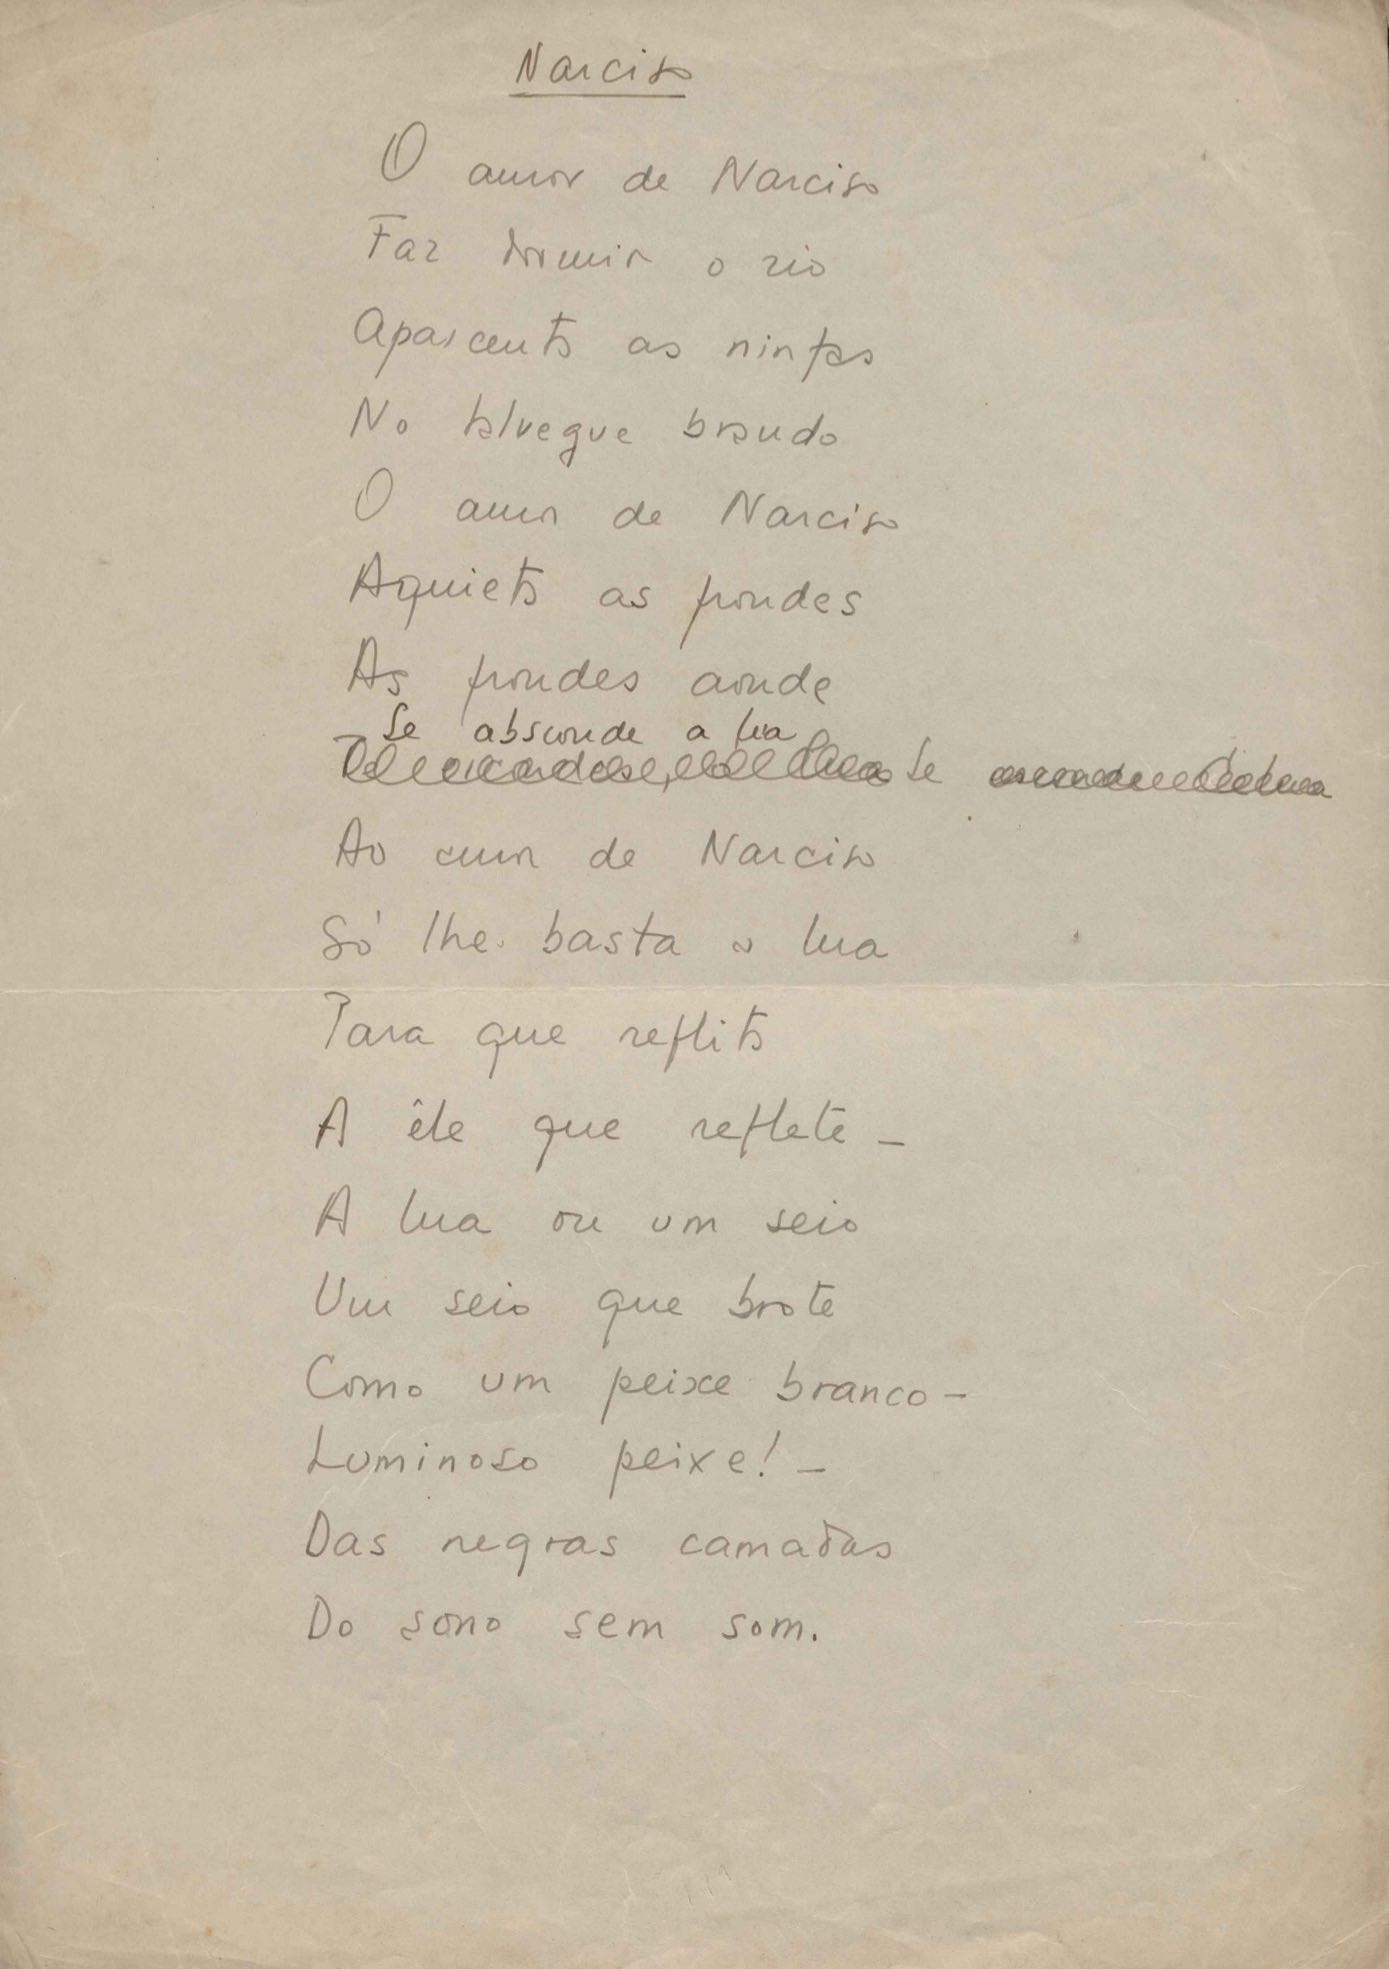 Narciso
O amor de Narciso
Faz dormir o rio
Apascenta as ninfas
No talvegue brando
O amor de Narciso
Aquieta as frondes
As frondes aonde
Se absconde a lua
Se
Ao amor de Narciso
Só lhe basta a lua
Para que reflita
A êle que reflete –
A lua ou um seio
Um seio que brote
Como um peixe branco –
Luminoso peixe! –
Das negras camadas
Do sono sem som.